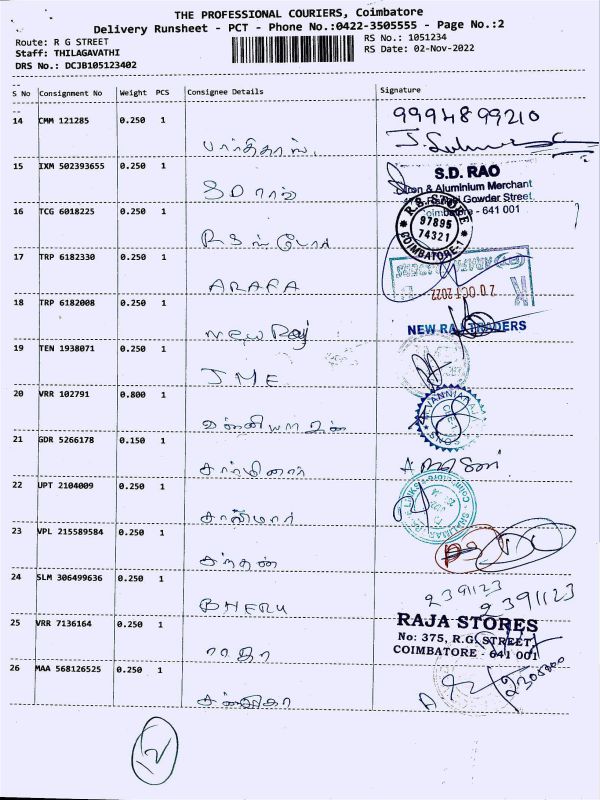 THE PROFESSIONAL COURIERS, Coimbatore
Delivery Runsheet - PCT - Phone No.:0422-3505555 - Page No.:2
Route: R G STREET
Staff: THILAGAVATHI
DRS No.: DCJB105123402
RS No.: 1051234
RS Date: 02-Nov-2022
S No Consignment No Weight PCS Consignee Details Signature
14 CMM 121285 0.250 1 9994899210
15 IXM 502393655 0.250 1 S.D. RAO
& Aluminium Merchant
Gowder Street,
- 641 001
SD ராவ்
16 TCG 6018225 0.250 1 R.S. STORE
97895
74321
COIMBATORE-1
17 TRP 6182330 0.250 1
20 OCT 2022
ARAFA
18 TRP 6182008 0.250 1 NEW RAJ TRADERS
New Raj
19 TEN 1938071 0.250 1
JME
20 VRR 102791 0.800 1
21 GDR 5266178 0.150 1
22 UPT 2104009 0.250 1
சாலிமார்
23 VPL 215589584 0.250 1
24 SLM 306499636 0.250 1 2391123
2391123
BHERU
25 VRR 7136164 0.250 1 RAJA STORES
No: 375, R.G. STREET,
COIMBATORE - 641 001
ராஜா
26 MAA 568126525 0.250 1